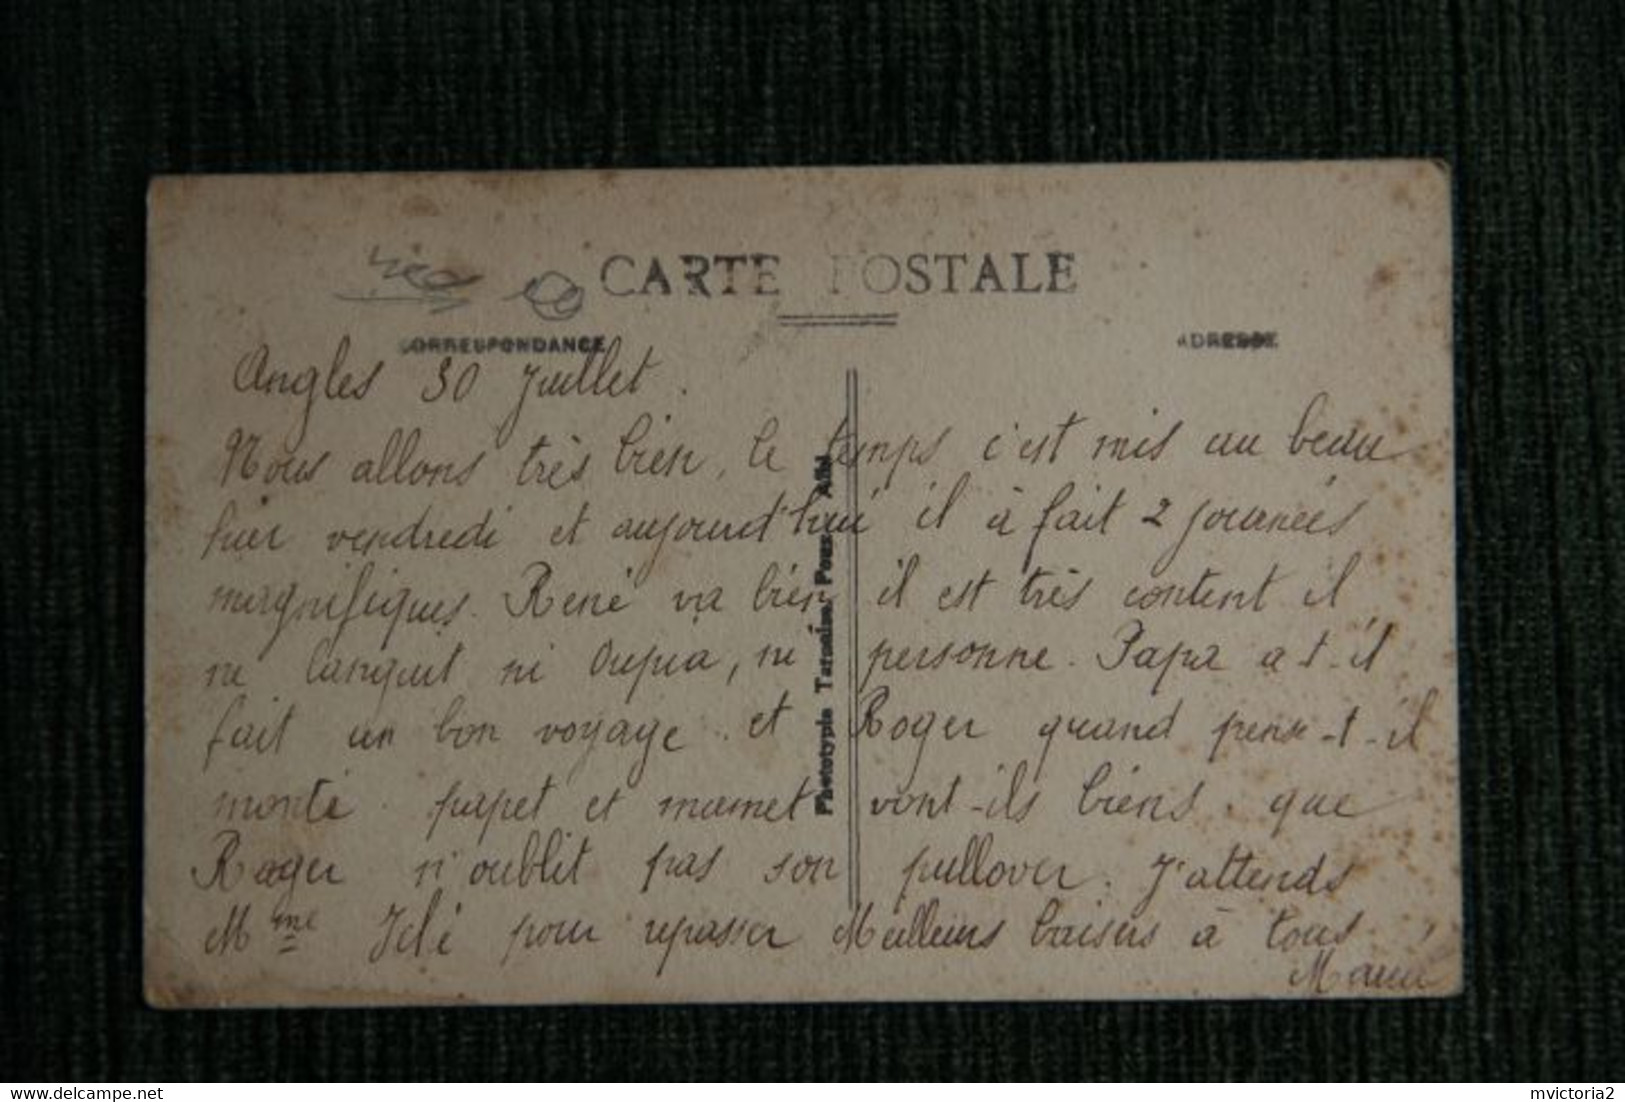 CARTE POSTALE
CORRESPONDANCE
ADRESSE
Angles 30 Juillet.
Nous allons très bien, le temps c'est mis au beau
hier vendredi et aujourd'hui il à fait 2 journées
magnifiques. René va bien il est très content il
ne languit ni Oupia, ni personne. Papa a-t-il
fait un bon voyage. et Roger quand pense-t-il
monté. papet et mamet vont-ils biens. que
Roger n'oublit pas son pullover. J'attends
Mme pour repasser Meilleurs baisers à tous.
Phototypie Tarnaise Poux Albi
delcampe.net
mvictoria2